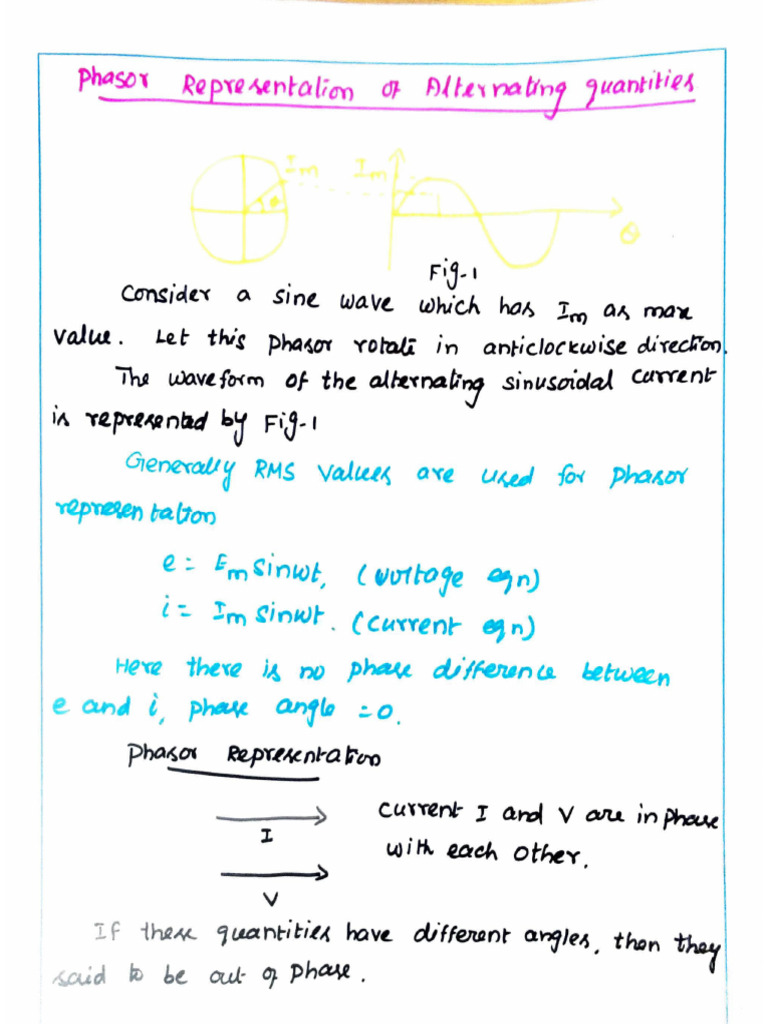 Phasor Representation of Alternating quantities
Im Im
θ
Fig-1
Consider a sine wave which has Im as max
value. Let this phasor rotate in anticlockwise direction.
The waveform of the alternating sinusoidal current
is represented by Fig-1
Generally RMS values are used for phasor
representation
e = Em sinwt, (voltage eqn)
i = Im sinwt. (current eqn)
Here there is no phase difference between
e and i, phase angle = 0.
Phasor Representation
current I and V are in phase
I
with each other.
V
If these quantities have different angles, then they
said to be out of phase.